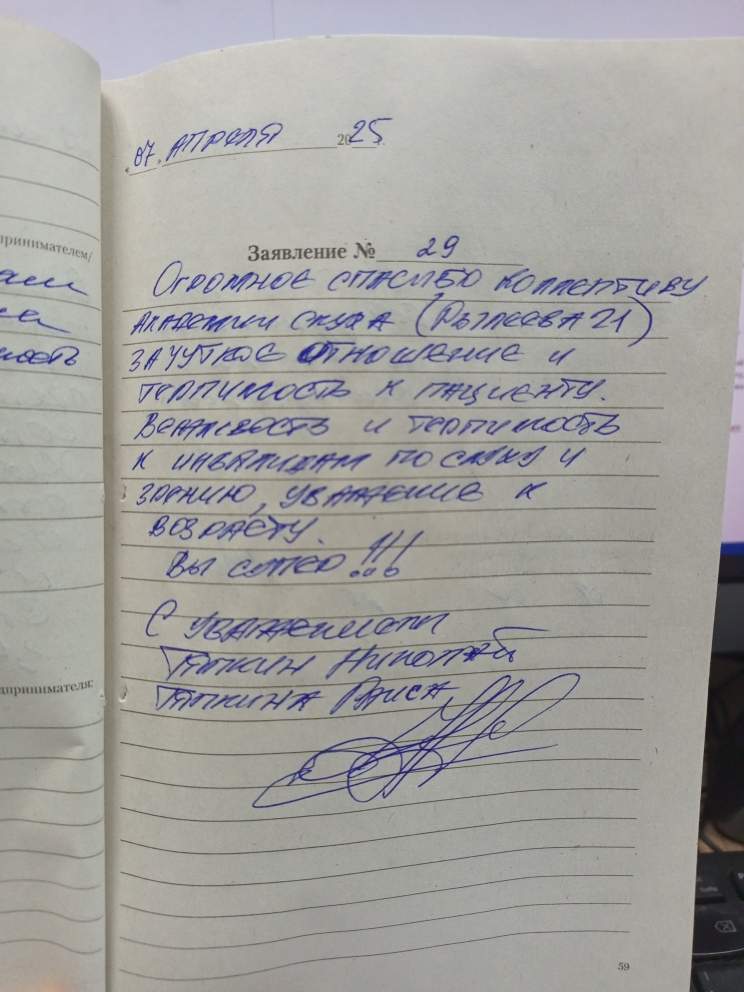 07. АПРЕЛЯ 2025 г.
Заявление № 29
ОГРОМНОЕ СПАСИБО КОЛЛЕКТИВУ
АКАДЕМИИ СЛУХА (РЫЛЕЕВА 21)
ЗА ЧУТКОЕ ОТНОШЕНИЕ И
ТЕРПИМОСТЬ К ПАЦИЕНТУ.
ВЕЖЛИВОСТЬ И ТЕРПИМОСТЬ
К ИНВАЛИДАМ ПО СЛУХУ И
ЗРЕНИЮ, УВАЖЕНИЕ К
ВОЗРАСТУ.
ВЫ СУПЕР !!!
С УВАЖЕНИЕМ
НИКОЛАЙ
РАИСА
59
принимателем/
дпринимателя: